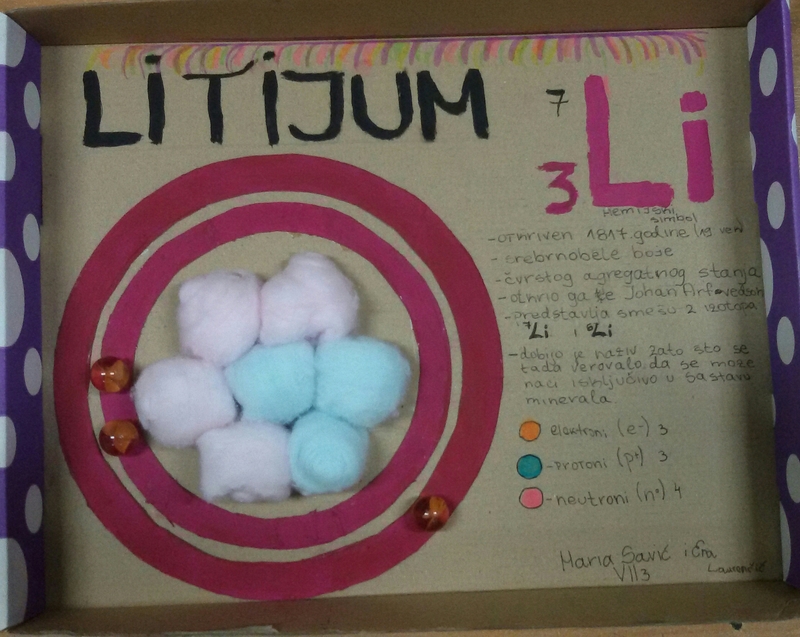 LITIJUM
7
Li
3
Hemijski
simbol
-otkriven 1817. godine (19 vek)
- srebrnobele boje
-čvrstog agregatnog stanja
-otkrio ga je Johan Arfvedson
-predstavlja smešu 2 izotopa
⁷Li i ⁶Li
-dobio je naziv zato što se
tada verovalo da se može
naći isključivo u sastavu
minerala.
elektroni (e-) 3
-protoni (p+) 3
-neutroni (n°) 4
Maria Savić i
VII3